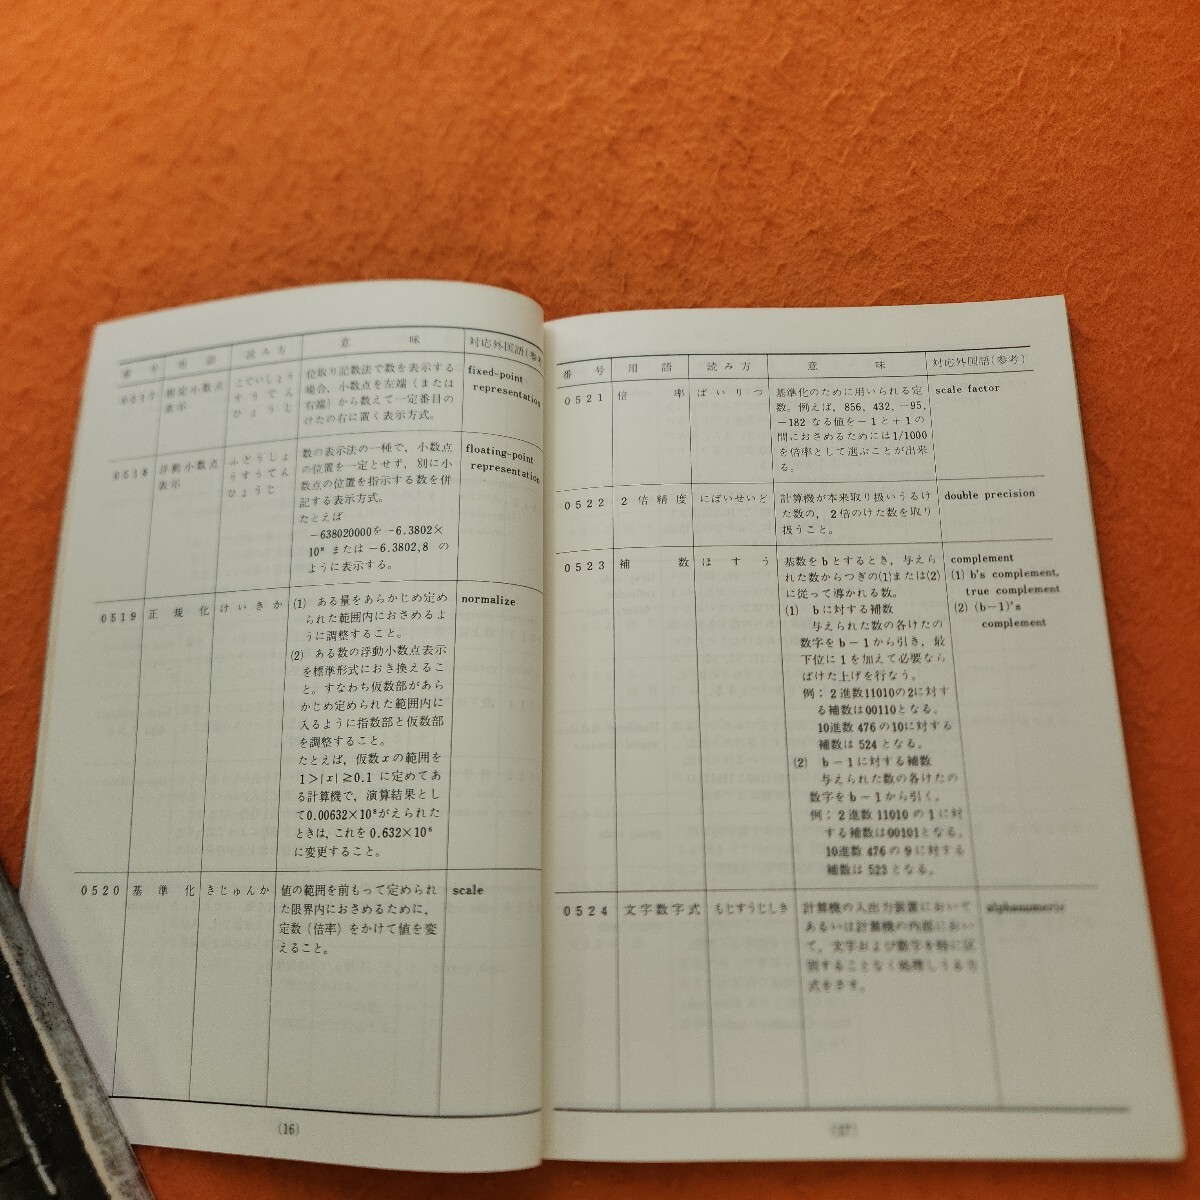 番号 用語 読み方 意味 対応外国語(参考)
0517 固定小数点表示 こていしょうすうてんひょうじ
位取り記数法で数を表示する
場合，小数点を左端（または
右端）から数えて一定番目の
けたの右に置く表示方式。
fixed-point
representation
0518 浮動小数点表示 ふどうしょうすうてんひょうじ
数の表示法の一種で，小数点
の位置を一定とせず，別に小
数点の位置を指示する数を併
記する表示方式。
たとえば
-638020000を -6.3802×
10⁸ または -6.3802,8 の
ように表示する。
floating-point
representation
0519 正規化 けいきか
(1) ある量をあらかじめ定め
られた範囲内におさめるよ
うに調整すること。
(2) ある数の浮動小数点表示
を標準形式におき換えるこ
と。すなわち仮数部があら
かじめ定められた範囲内に
入るように指数部と仮数部
を調整すること。
たとえば，仮数xの範囲を
1>|x|≧0.1 に定めてあ
る計算機で，演算結果とし
て0.00632×10⁸がえられた
ときは，これを 0.632×10⁶
に変更すること。
normalize
0520 基準化 きじゅんか
値の範囲を前もって定められ
た限界内におさめるために，
定数（倍率）をかけて値を変
えること。
scale
(16)
番号 用語 読み方 意味 対応外国語(参考)
0521 倍率 ばいりつ
基準化のために用いられる定
数。例えば，856, 432, -95,
-182 なる値を-1と+1の
間におさめるためには1/1000
を倍率として選ぶことが出来
る。
scale factor
0522 2倍精度 にばいせいど
計算機が本来取り扱いうるけ
た数の，2倍のけた数を取り
扱うこと。
double precision
0523 補数 ほすう
基数をbとするとき，与えら
れた数からつぎの(1)または(2)
に従って導かれる数。
(1) bに対する補数
与えられた数の各けたの
数字をb-1から引き，最
下位に1を加えて必要なら
ばけた上げを行なう。
例：2進数11010の2に対す
る補数は00110となる。
10進数 476の10に対する
補数は 524となる。
(2) b-1に対する補数
与えられた数の各けたの
数字をb-1から引く。
例：2進数 11010 の1に対
する補数は00101となる。
10進数 476の 9に対する
補数は 523となる。
complement
(1) b's complement,
true complement
(2) (b-1)'s
complement
0524 文字数字式 もじすうじしき
計算機の入出力装置において
あるいは計算機の内部におい
て，文字および数字を特に区
別することなく処理しうる方
式をさす。
alphanumeric
(17)